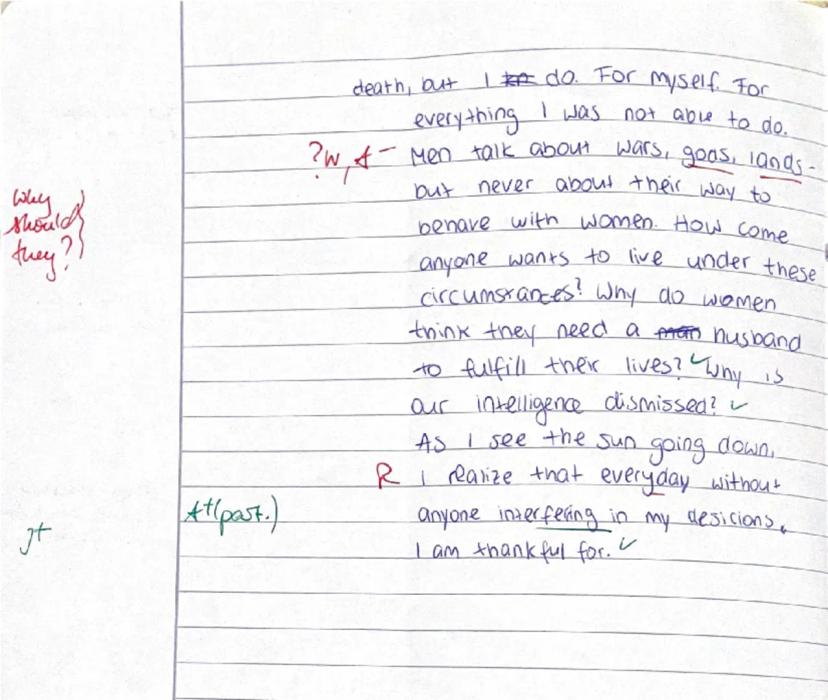 death, but I do. For myself. For
everything I was not able to do.
?W, A- Men talk about wars, goas, lands-
Why should they? but never about their way to
behave with women. How come
anyone wants to live under these
circumstances? Why do women
think they need a man husband
to fulfill their lives? Why is
our intelligence dismissed?
As I see the sun going down,
R I realize that everyday without
A+(part.) anyone interfering in my desicions,
I am thankful for.